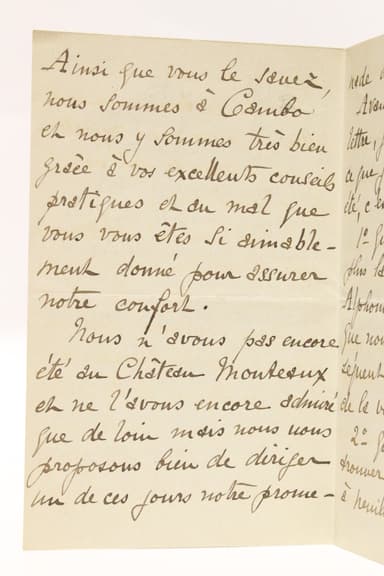 Ainsi que vous le savez,
nous sommes à Cambo
et nous y sommes très bien
grâce à vos excellents conseils
pratiques et au mal que
vous vous êtes si aimable-
ment donné pour assurer
notre confort.
Nous n'avons pas encore
été au Château Monteaux
et ne l'avons encore admiré
que de loin mais nous nous
proposons bien de diriger
un de ces jours notre prome-
Avan
lettre, j
ce que j
été, c'e
1º
plus la
Alphon
que nou
2º
trouver
à